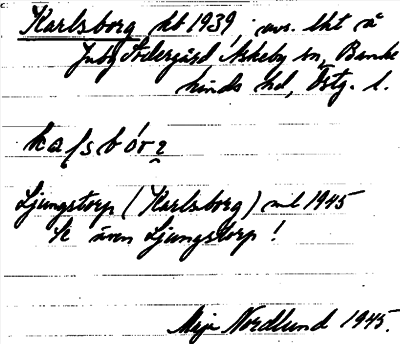 Karlsborg kt 1939 avs. lht å
Juby Södergård Askeby sn, Banke
kinds hd, Östg. l.
Ljungstorp (Karlsborg) mtl 1945
K även Ljungstorp!
Maja Nordlund 1945.